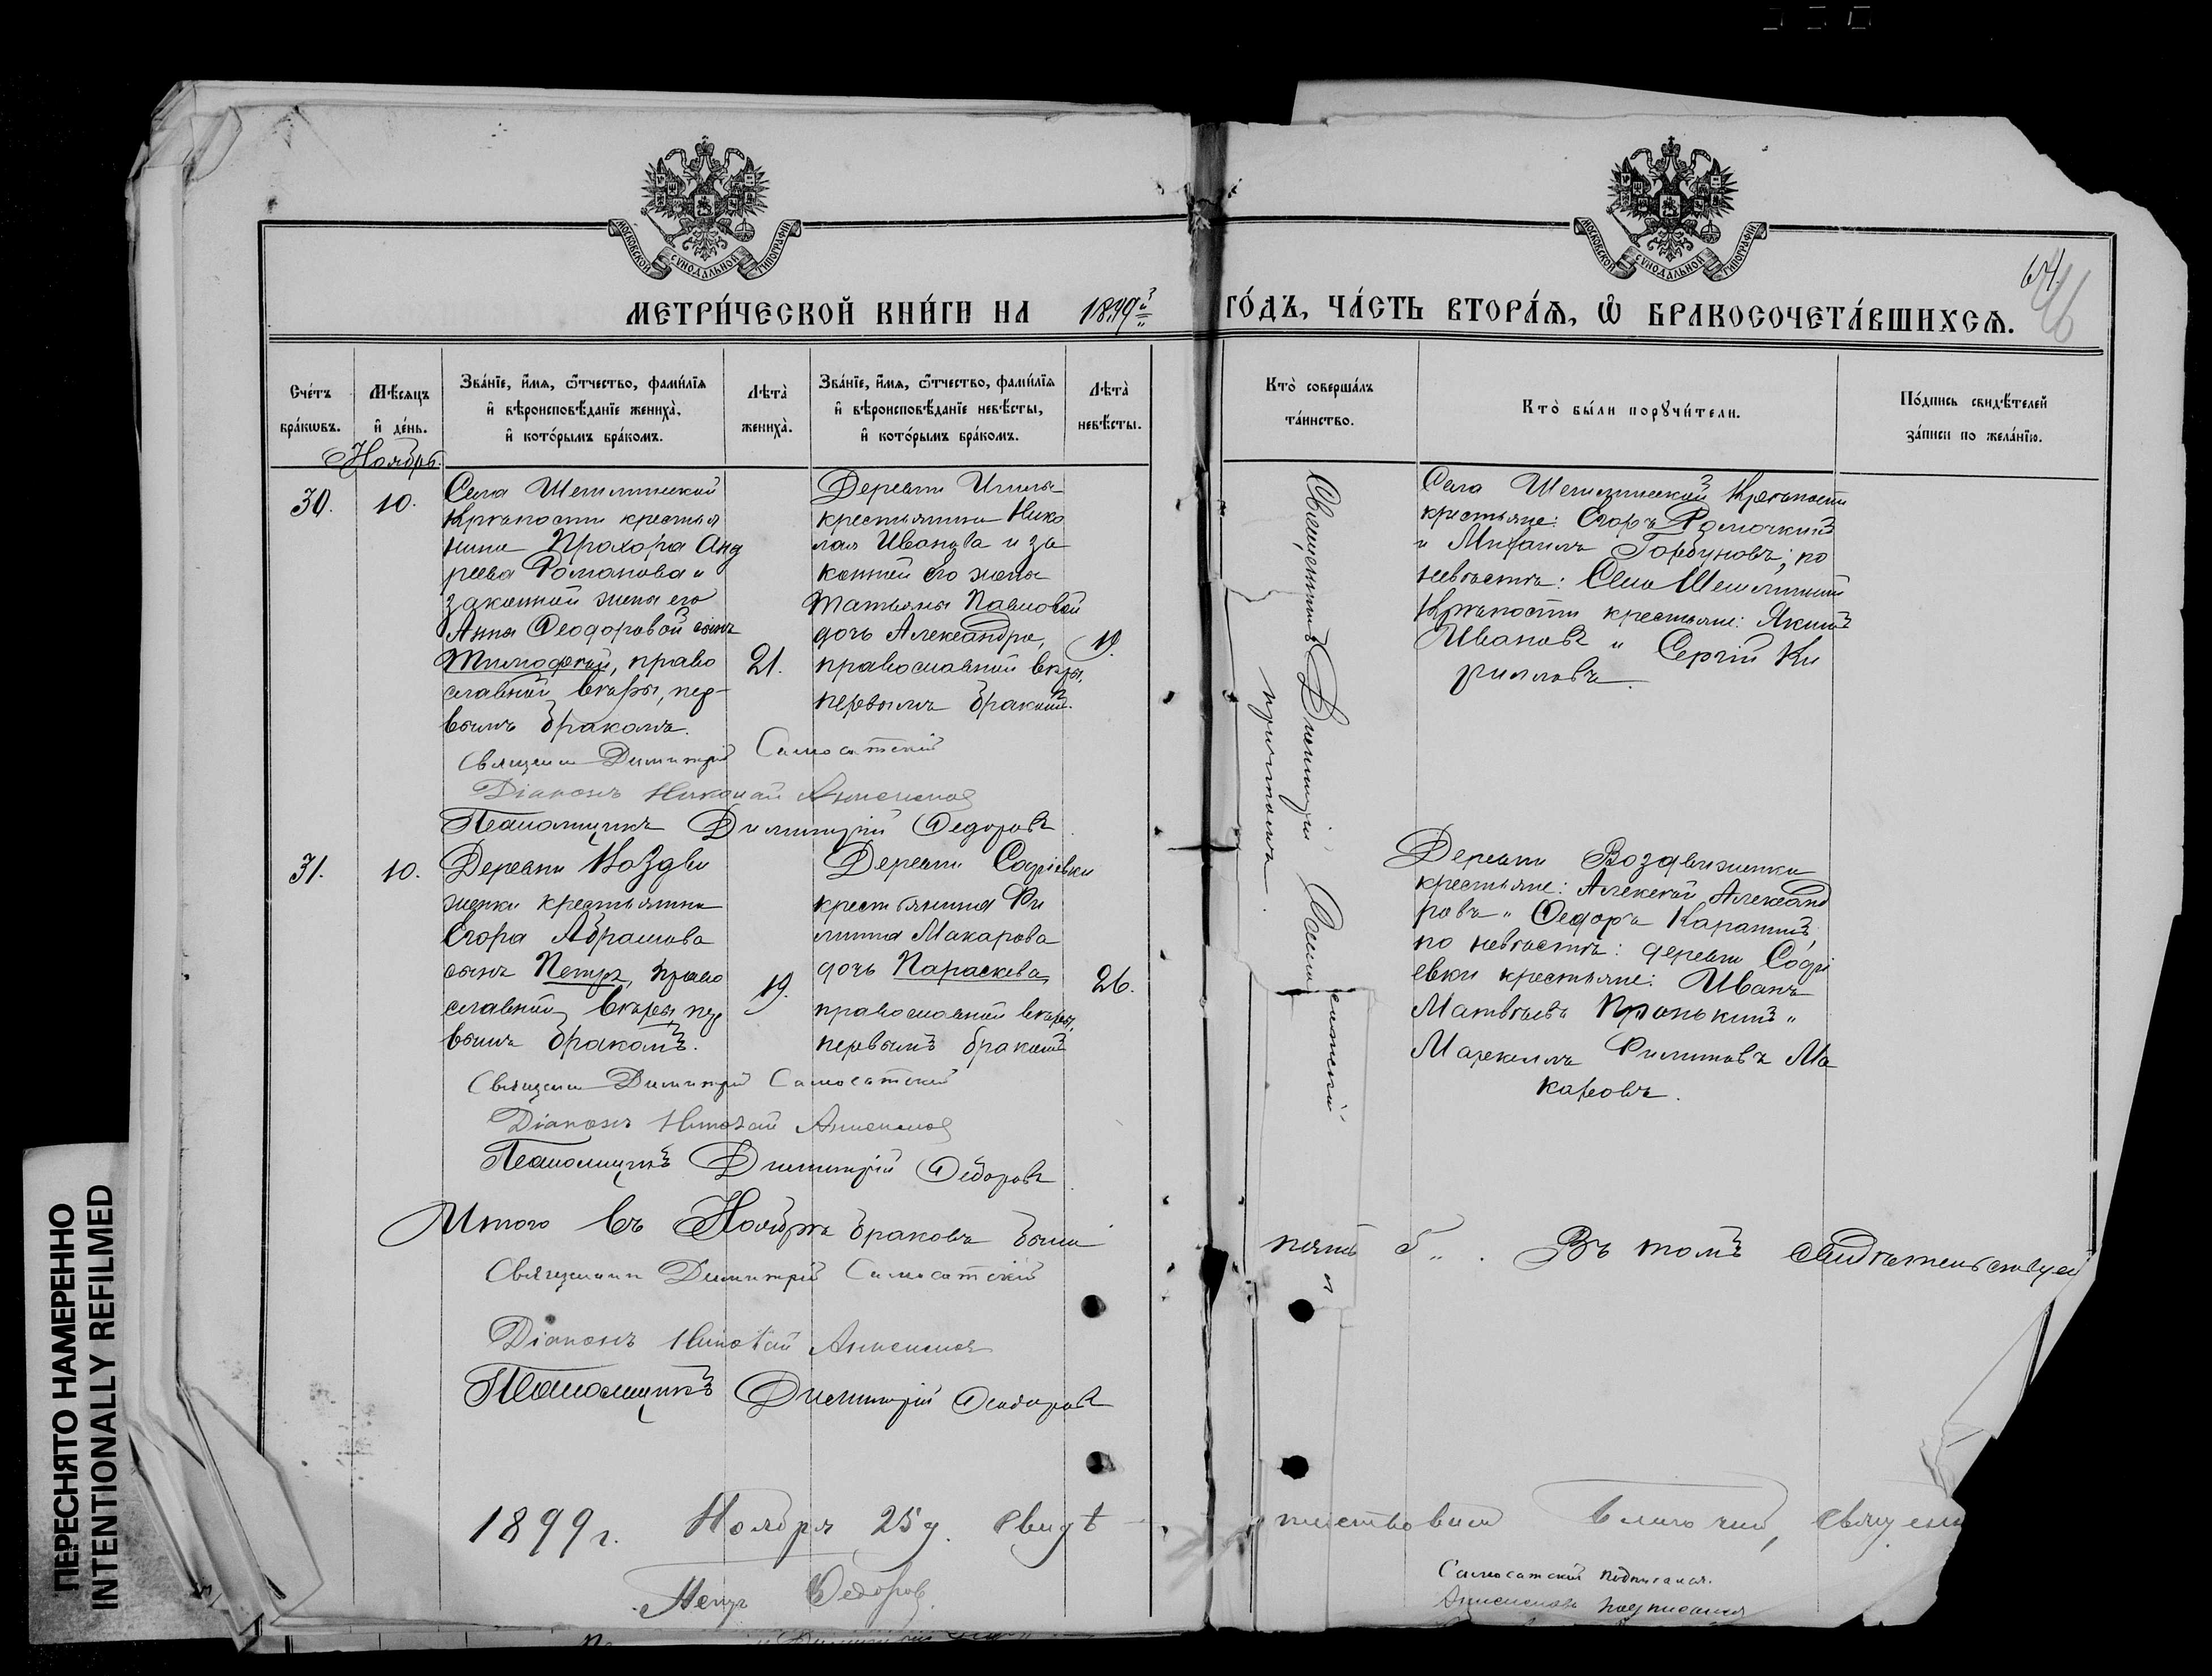 МОСКОВСКОЙ СѴНОДАЛЬНОЙ ТИПОГРАФІИ
МОСКОВСКОЙ СѴНОДАЛЬНОЙ ТИПОГРАФІИ
64
46
МЕТРИ́ЧЕСКОЙ КНИ́ГИ НА 1899й ГО́ДЪ, ЧА́СТЬ ВТОРА́Ѧ, Ѽ БРАКОСОЧЕТА́ВШИХСѦ.
Сче́тъ бра́кѡвъ.
Мѣ́сѧцъ и҆ де́нь.
Зва́нїе, и҆́мѧ, ѻ҆́тчество, фами́лїѧ и҆ вѣроисповѣ́данїе жениха̀, и҆ кото́рымъ бра́комъ.
Лѣта̀ жениха̀.
Зва́нїе, и҆́мѧ, ѻ҆́тчество, фами́лїѧ и҆ вѣроисповѣ́данїе невѣ́сты, и҆ кото́рымъ бра́комъ.
Лѣта̀ невѣ́сты.
Кто̀ соверша́лъ та́инство.
Кто̀ бы́ли порꙋчи́тели.
По́дпись свидѣ́телей за́писи по жела́нїю.
Ноябрь.
30.
10.
Села Шешминской
Крѣпости крестья
нина Прохора Анд
реева Романова и
законной жены его
Анны Ѳеодоровой сынъ
Тимоѳей, право
славной вѣры, пер-
вымъ бракомъ.
21.
Деревни
крестьянина Нико
лая Иванова и за
конной его жены
Татьяны Павловой
дочь Александра,
православной вѣры,
первымъ бракомъ.
19.
Священникъ Димитрій Самосатскій
приготомъ.
Села Шешминской Крѣпости
крестьяне: Егоръ Ромочкинъ
и Михаилъ Горбуновъ; по
невѣстѣ: Села Шешминской
Крѣпости крестьяне: Якимъ
Ивановъ и Сергій Ки
рилловъ.
Священн Димитрій Самосатскій
Діаконъ Николай
Псаломщикъ Димитрій Ѳедоровъ.
31.
10.
Деревни Воздви
женки крестьянина
Егора Абрамова
сынъ Петръ, право
славной вѣры, пер
вымъ бракомъ.
19.
Деревни Софіевки
крестьянина Фи
липпа Макарова
дочь Параскева,
православной вѣры,
первымъ бракомъ
26.
Деревни Воздвиженки
крестьяне: Алексѣй Александ
ровъ и Ѳедоръ Каратинъ
по невѣстѣ: деревни Софі
евки крестьяне: Иванъ
Матвѣевъ Пронькинъ и
Маркеллъ Филипповъ Ма
каровъ.
Священн Димитрій Самосатскій
Діаконъ Николай
Псаломщикъ Димитрій Ѳедоровъ.
Итого въ Ноябрѣ браковъ было пять 5. Въ томъ свидѣтельствуем
Священникъ Димитрій Самосатскій
Діаконъ Николай
Псаломщикъ Димитрій Ѳеодоровъ
1899 г. Ноября 25 д. свидѣтельствовалъ Благочин, священн
Петръ Ѳедоров.
Самосатскій подписался.
подписался
ПЕРЕСНЯТО НАМЕРЕННО
INTENTIONALLY REFILMED